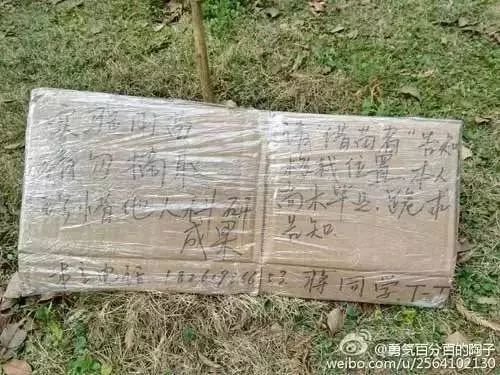 实验用苗
请勿摘取
珍惜他人科研
成果
请“借苗者”告知
移栽位置,本人
尚未毕业,跪求
告知
苗主电话 同学.T-T
@勇気百分百的陶子
weibo.com/u/2564102130